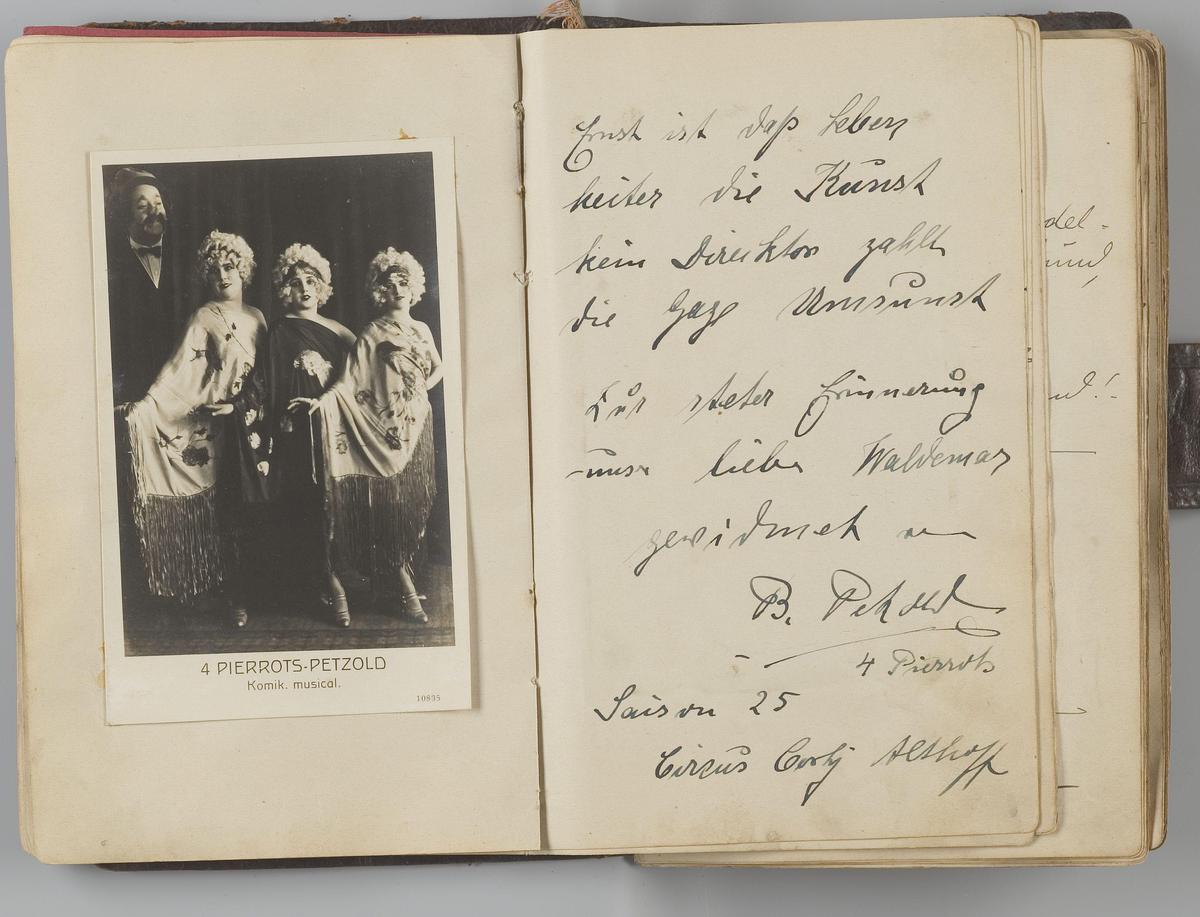 4 PIERROTS-PETZOLD
Komik. musical.
10895
Ernst ist daß Leben
heiter die Kunst
kein Direktor zahlt
die Gage Umsunst
Zur steter Erinnerung
unser lieber Waldemar
gewidmet von
B. Petzold
4 Pierrots
Saison 25
Circus Corty Althoff
del-
und,
nd!